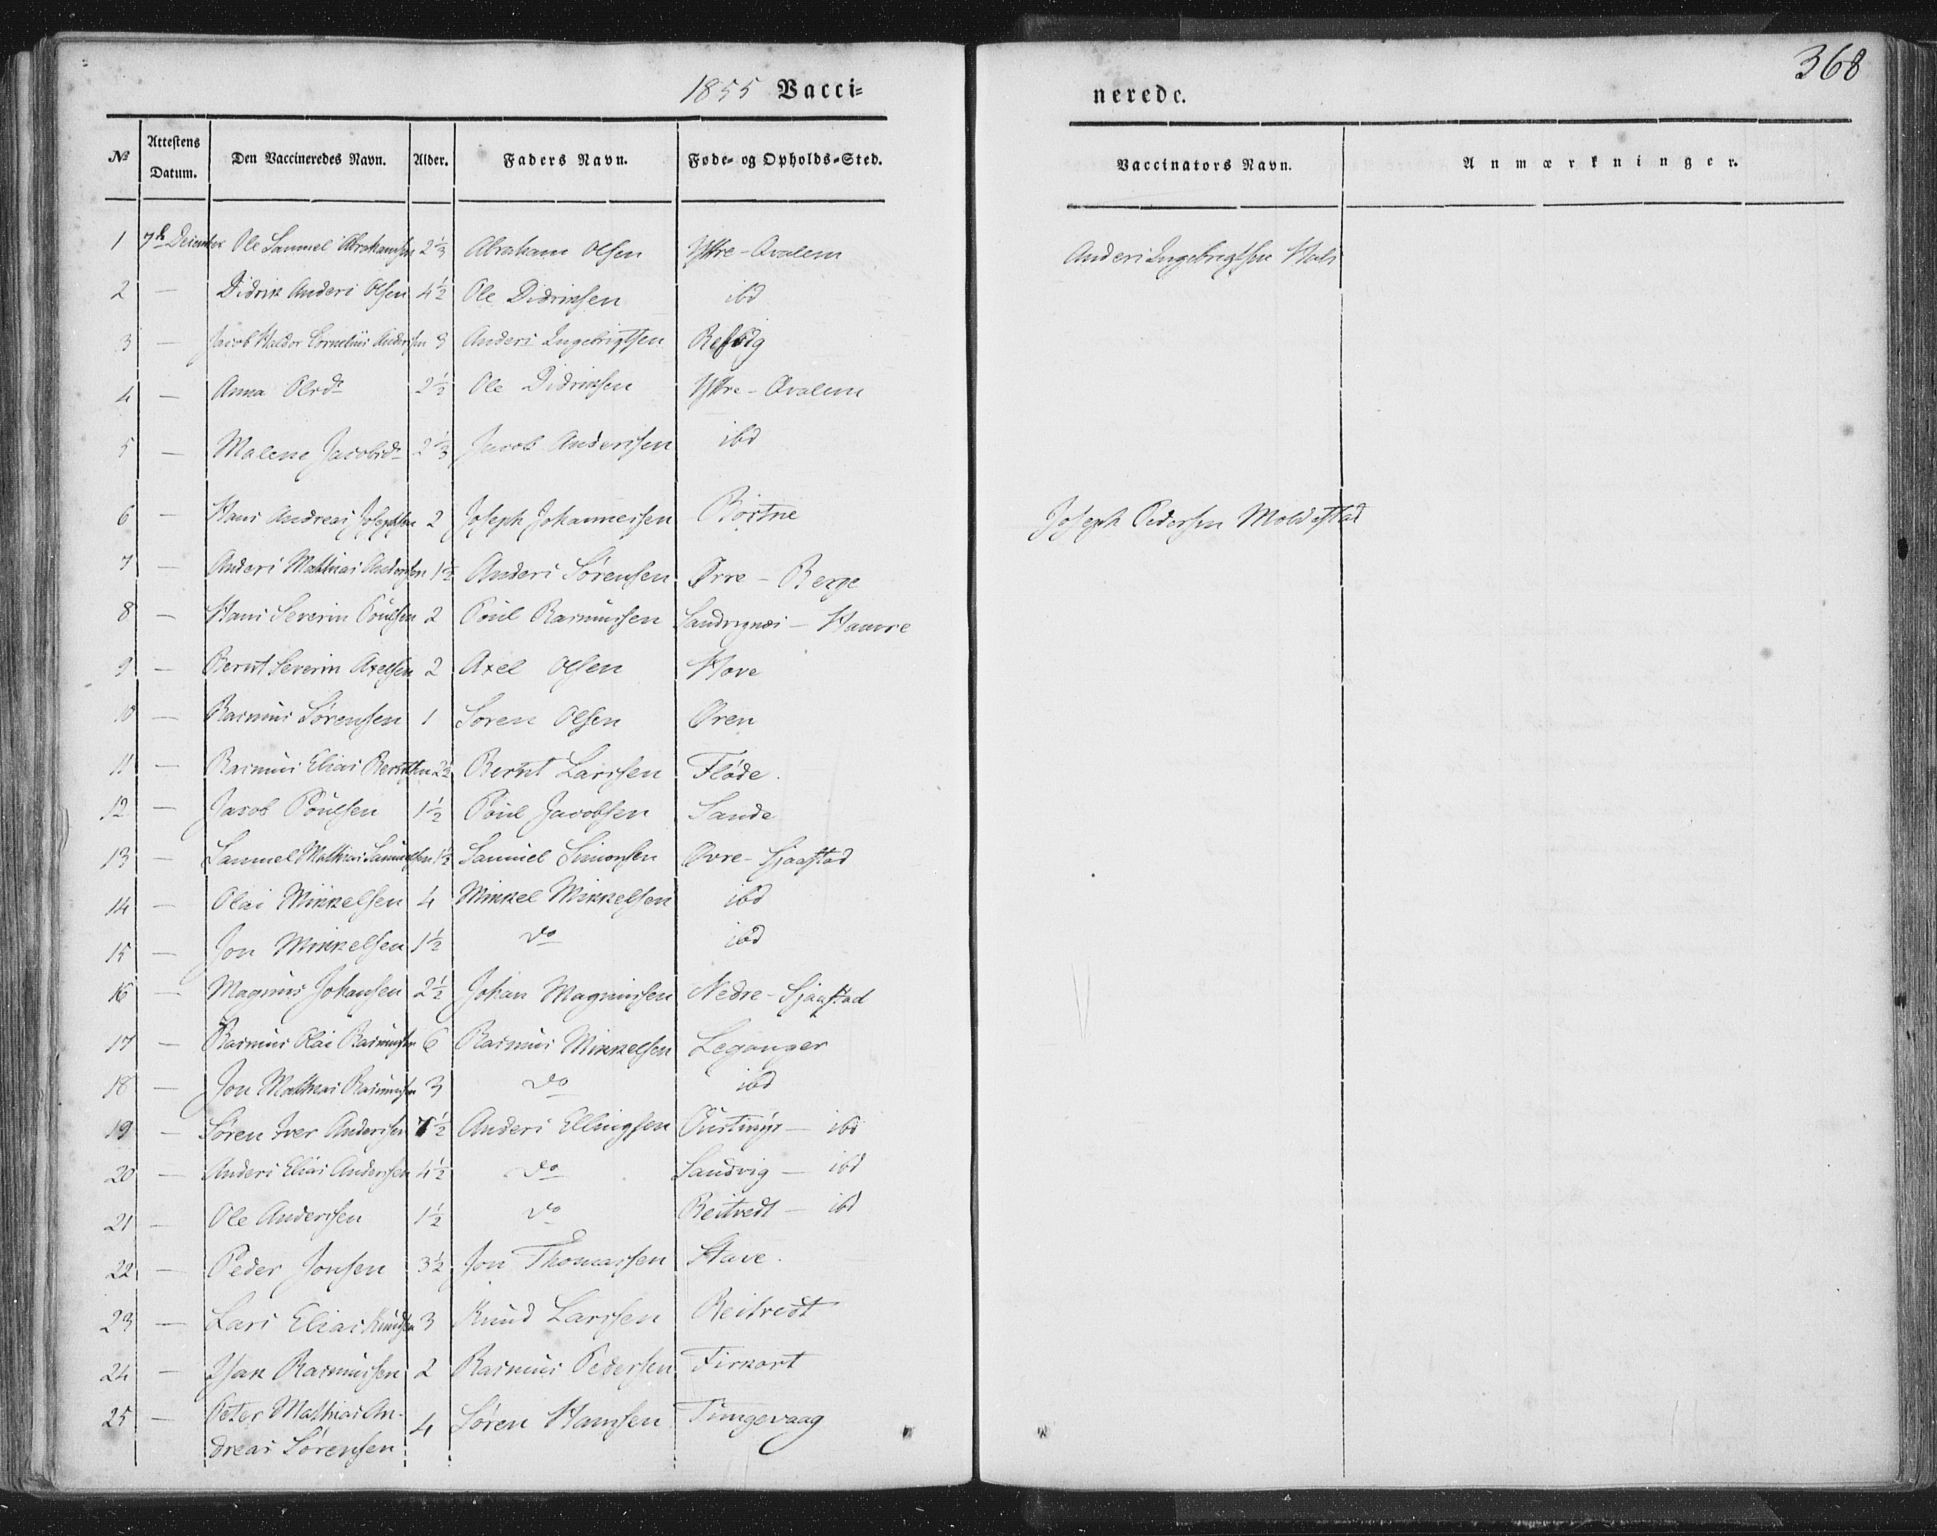 368
1855 Vacci=
nerede.
No
Attestens Datum.
Den Vaccineredes Navn.
Alder.
Faders Navn.
Føde- og Opholds-Sted.
Vaccinators Navn.
Anmærkninger.
1 7de December Ole Samuel Abrahamsen 2 1/3 Abraham Olsen Yttre-Qvalem Anders Ingebrigtsen Hals
2 — Didrik Anders Olsen 4 1/2 Ole Didriksen ibd
3 — Jacob Haldor Cornelius Andersen 3 Anders Ingebrigtsen Refvig
4 — Anna Olsdr 2 1/2 Ole Didriksen Yttre-Qvalem
5 — Malene Jacobsdr 2 1/3 Jacob Andersen ibd
6 — Hans Andreas Josephsen 2 Joseph Johannessen Börtne Joseph Pedersen Moldestad
7 — Anders Mathias Andersen 1 1/2 Anders Sørensen Ørre-Berge
8 — Hans Severin Poulsen 2 Poul Rasmussen Sandvignæs — Haavre
9 — Bernt Severin Axelsen 2 Axel Olsen Hove
10 — Rasmus Sørensen 1 Søren Olsen Øren
11 — Rasmus Elias Berntsen 2 1/2 Bernt Larssen Flöde.
12 — Jacob Poulsen 1 1/2 Poul Jacobsen Sande
13 — Samuel Mathias Samuelsen 1 1/3 Samuel Simonsen Øvre-Sjaastad
14 — Olai Mikkelsen 4 Mikkel Mikkelsen ibd
15 — Jon Mikkelsen 1 1/2 do ibd
16 — Magnus Johansen 2 1/2 Johan Magnussen Nedre-Sjaastad
17 — Rasmus Olai Rasmussen 6 Rasmus Mikkelsen Leganger
18 — Jon Mathias Rasmussen 3 do ibd
19 — Søren Iver Andersen 7 1/2 Anders Ellingsen — ibd
20 — Anders Elias Andersen 4 1/2 do Sandvig — ibd
21 — Ole Andersen 1 1/2 do Reitvedt — ibd
22 — Peder Jonsen 3 1/2 Jon Thomassen Stave.
23 — Lars Elias Knudsen 3 Knud Larssen Reitvedt
24 — Isak Rasmussen 2 Rasmus Pedersen Tirkort
25 — Peter Mathias An-
dreas Sørensen 4 Søren Hansen Tungevaag